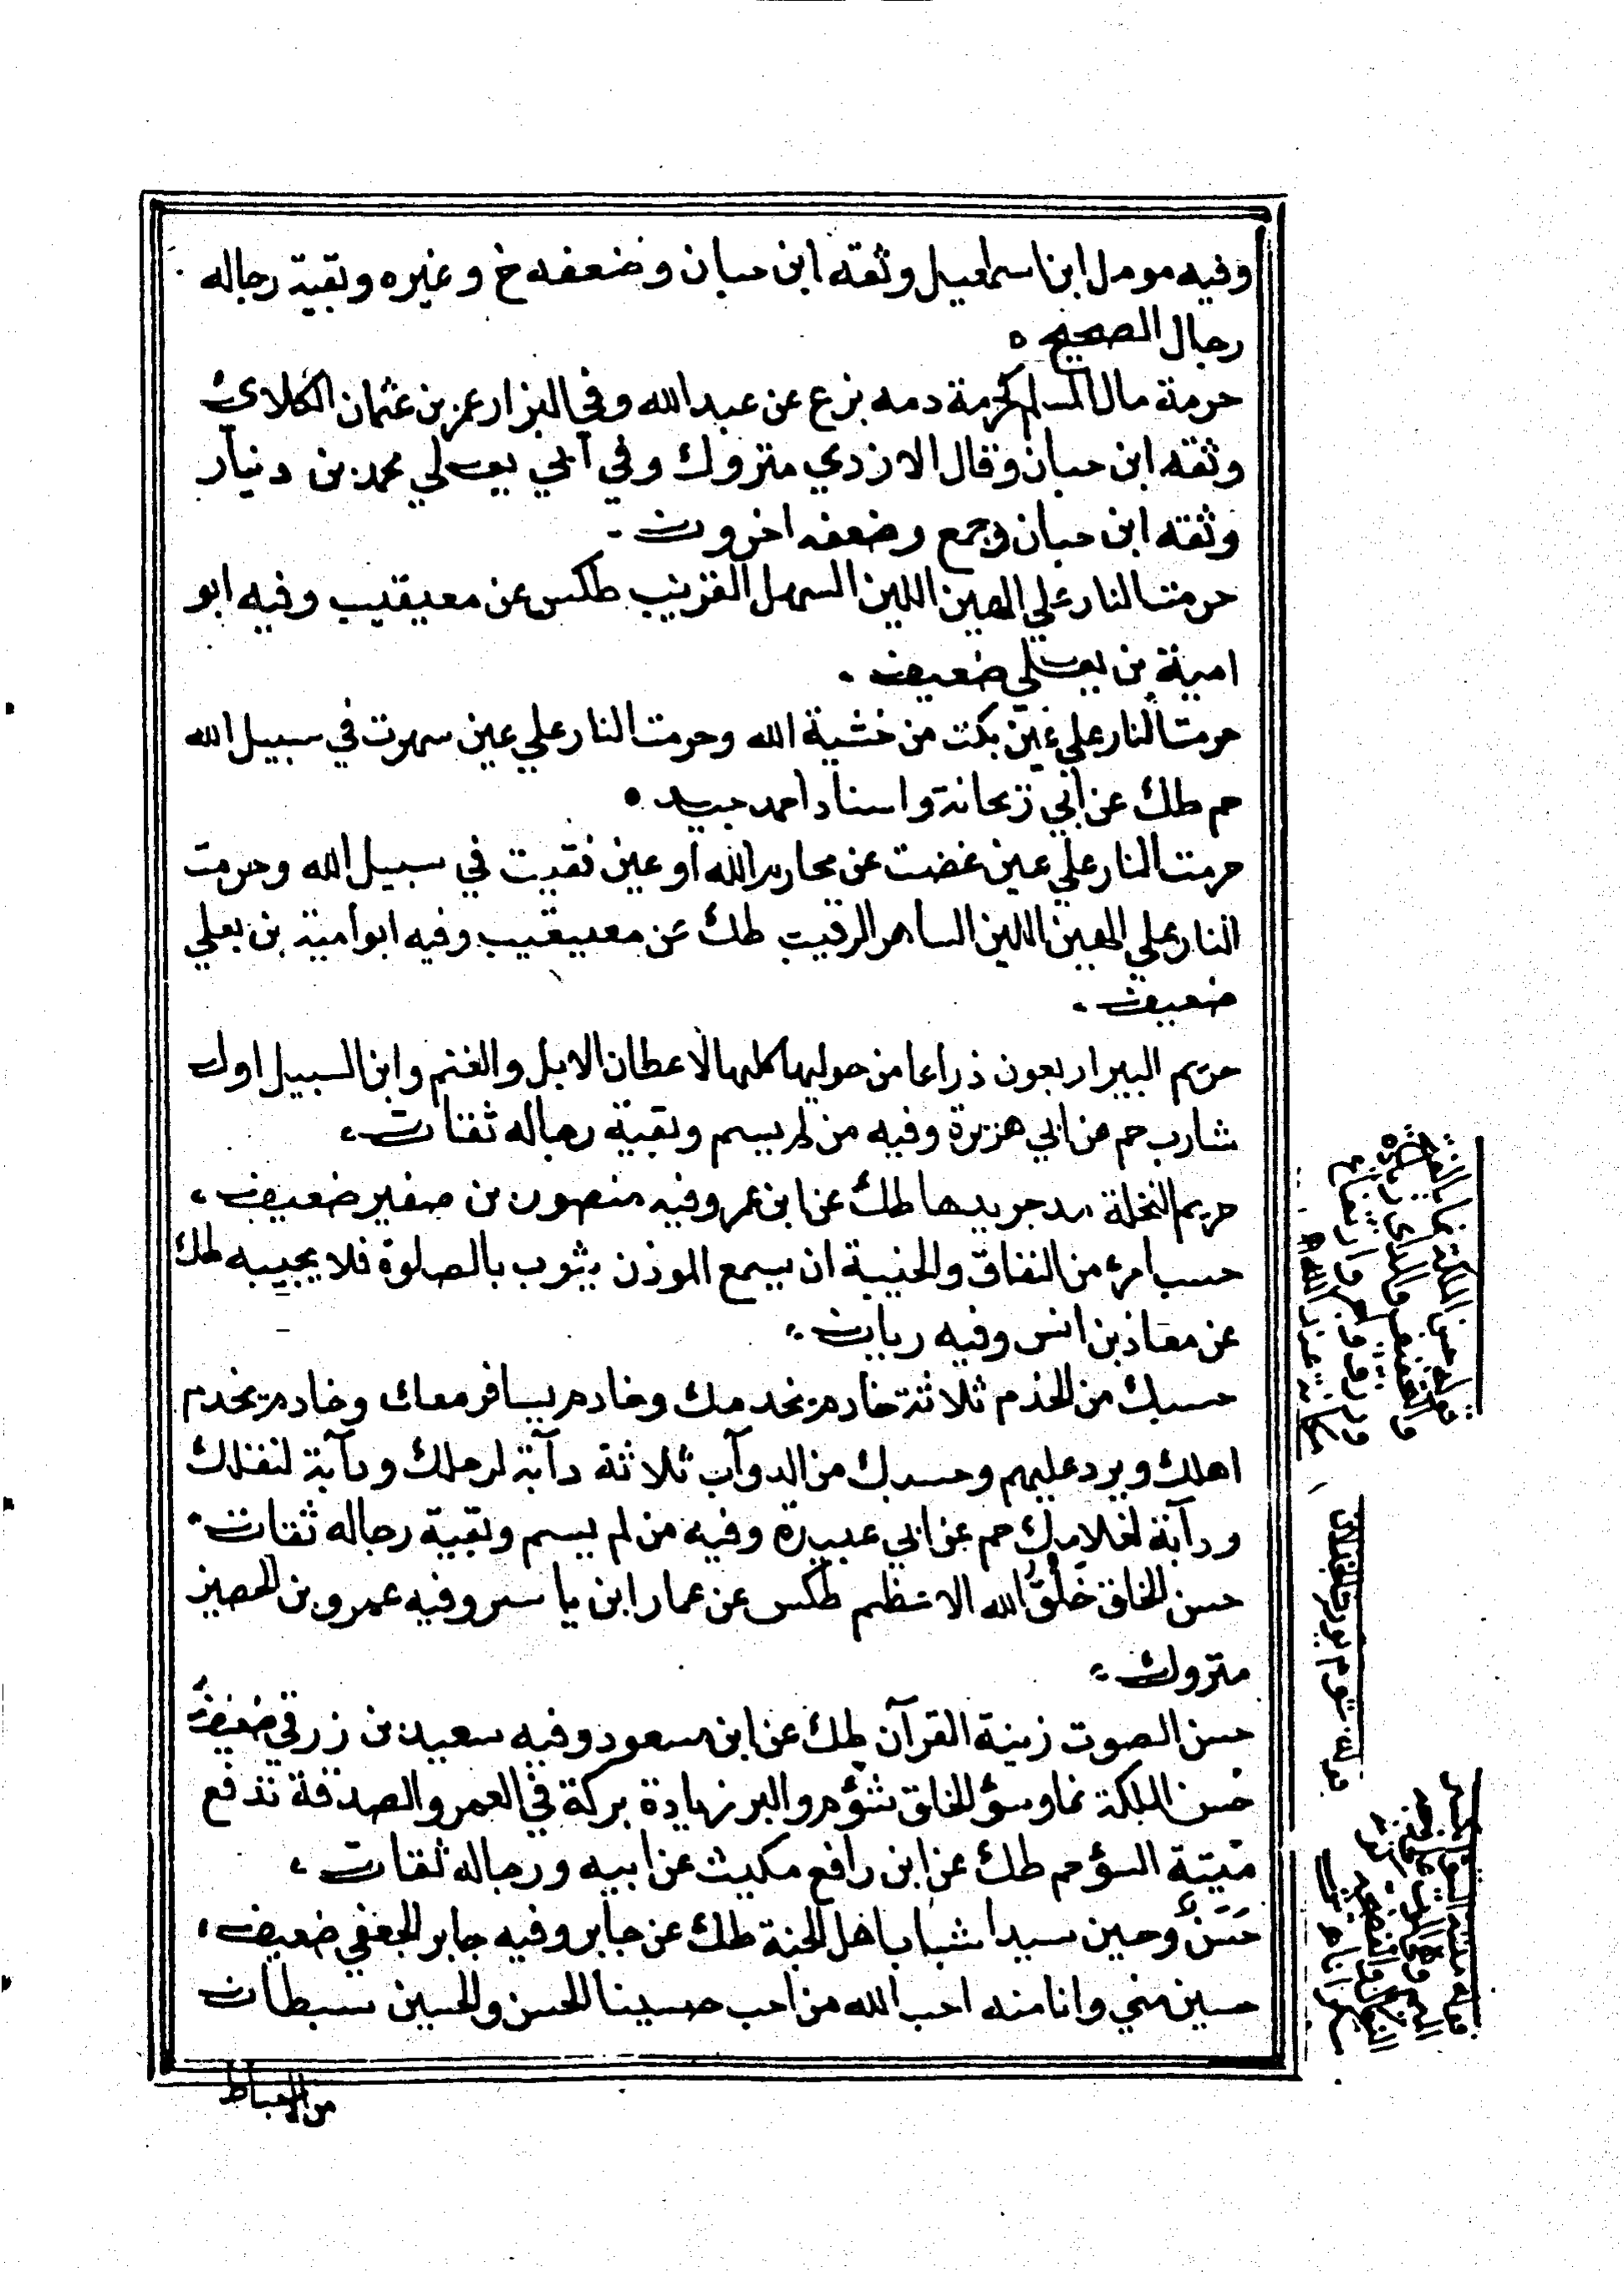 وفيه مومل ابن اسمعيل وثقه ابن حبان وضعفه خ وغيره وبقية رجاله
رجال الصحيح ه
حرمة مال المسلم كحرمة دمه بزع عن عبد الله وفي البزار عمر بن عثمان الكلابي
وثقه ابن حبان وقال الازدي متروك وفي ابي يعلي محمد بن دينار
وثقه ابن حبان وجمع وضعفه اخرون
حرمت النار علي الهين اللين السهل القريب طكس عن معيقيب وفيه ابو
امية بن يعلي ضعيف
حرمت النار علي عين بكت من خشية الله وحرمت النار علي عين سهرت في سبيل الله
حم طك عن ابي ريحانة واسناد احمد جيد
حرمت النار علي عين غضت عن محارم الله او عين فقيت في سبيل الله وحرمت
النار علي الهين اللين الساهر الرقيب طك عن معيقيب وفيه ابو امية بن يعلي
ضعيف
حريم البير اربعون ذراعا من حوليها كلها لاعطان الابل والغنم وابن السبيل اول
شارب حم عن ابي هريرة وفيه من لم يسم وبقية رجاله ثقات
حريم النخلة مد جريدها طك عن ابن عمر وفيه منصور بن صقير ضعيف
حسب امرء من النفاق والخيبة ان يسمع الموذن يثوب بالصلوة فلا يجيبه طك
عن معاذ بن انس وفيه ربان
حسبك من الخدم ثلاثة خادم يخدمك وخادم يسافر معك وخادم يخدم
اهلك ويرد عليهم وحسبك من الدوآب ثلاثة دآبة لرحلك ودآبة لنقلك
ودآبة لغلامك حم عن ابي عبيدة وفيه من لم يسم وبقية رجاله ثقات
حسن الخلق خلق الله الاعظم طكس عن عمار ابن ياسر وفيه عمرو بن الحصين
متروك
حسن الصوت زينة القرآن طك عن ابن مسعود وفيه سعيد بن زرقي ضعيف
حسن الملكة نما وسؤ الخلق شؤم والبر زيادة بركة في العمر والصدقة تدفع
ميتة السؤ حم طك عن ابن رافع مكيث عن ابيه ورجاله ثقات
حسن وحسين سيدا شباب اهل الجنة طك عن جابر وفيه جابر الجعفي ضعيف
حسين مني وانا منه احب الله من احب حسينا الحسن والحسين سبطان
من الاسباط
قوله حسن الملكة نما